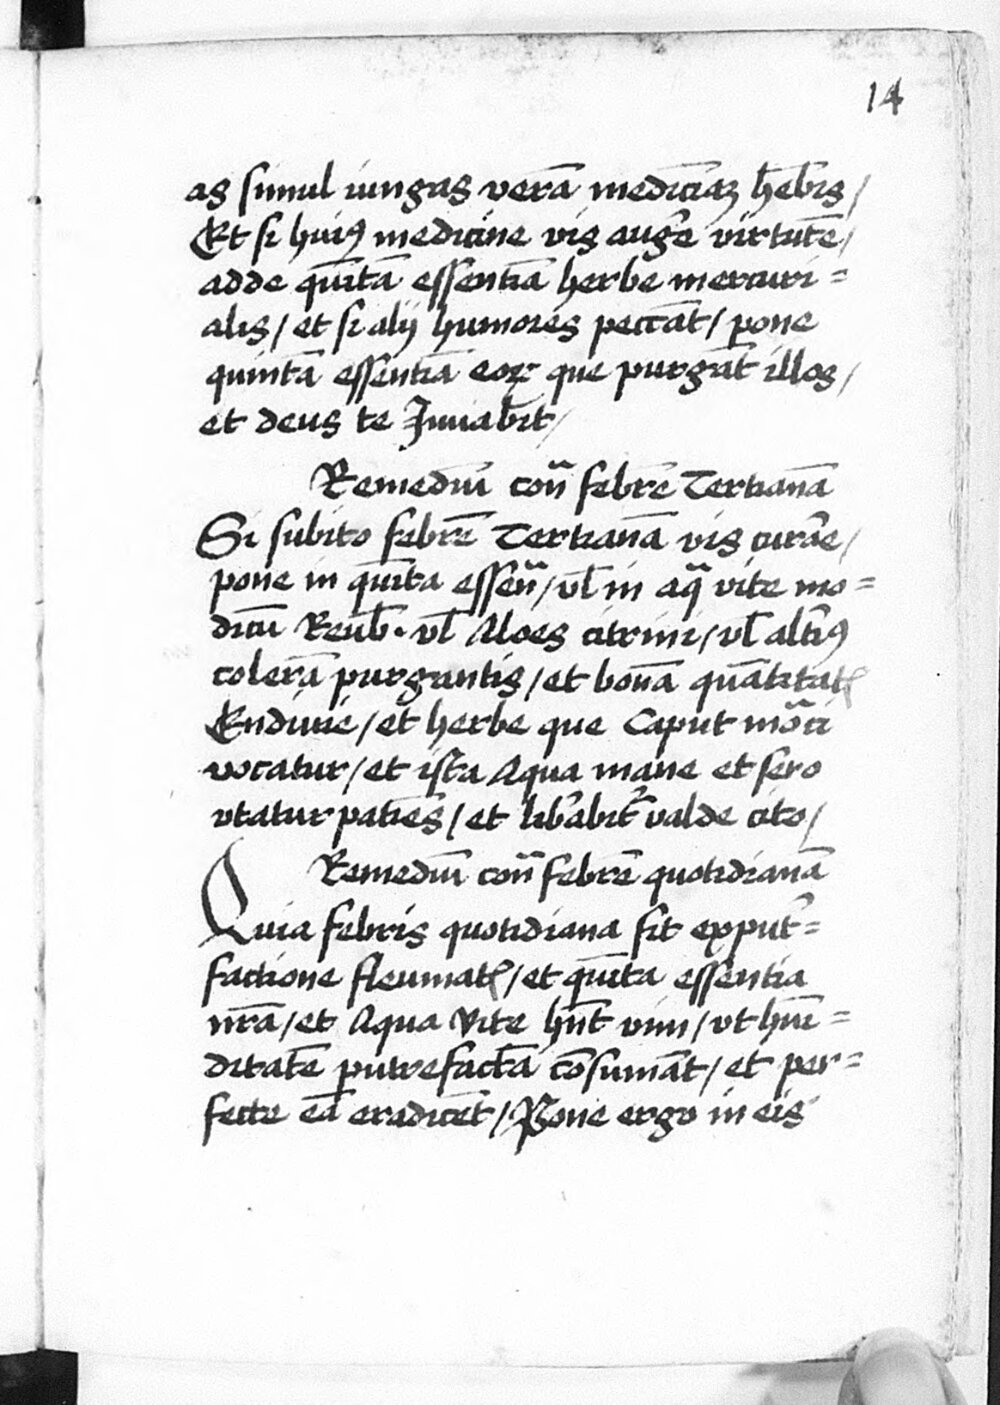 14
as simul iungas verā mediciā hēbis /
Et si huiꝰ medicine vis augē virtutē /
adde qūita essentiā herbe mercuri=
alis / et si alij humores peccāt / pone
quintā essentiā eoꝝ que purgāt illos /
et deus te Juuabit /
Remediū con̄ febrē Tertianā
Si subito febrē Tertianā vis curāe /
pone in qūita essen̄ / vl in aq̄ vite mo=
dicū Reub. vl Aloes citrini / vl altiꝰ
colerā purgantis / et bonā quātitatꝭ
Endiuie / et herbe que Caput mōci
vocatur / et ista Aqua mane et sero
vtatur patiēs / et libabit̄ valde cito /
Remediū con̄ febrē quotidianā
Quia febris quotidiana fit ex put=
factione fleumatꝭ / et qūita essentia
nrā / et Aqua vite hn̄t vim / vt hūi=
ditatē putrefactā cōsumāt / et per=
fecte eā eradicēt / Pone ergo in eis